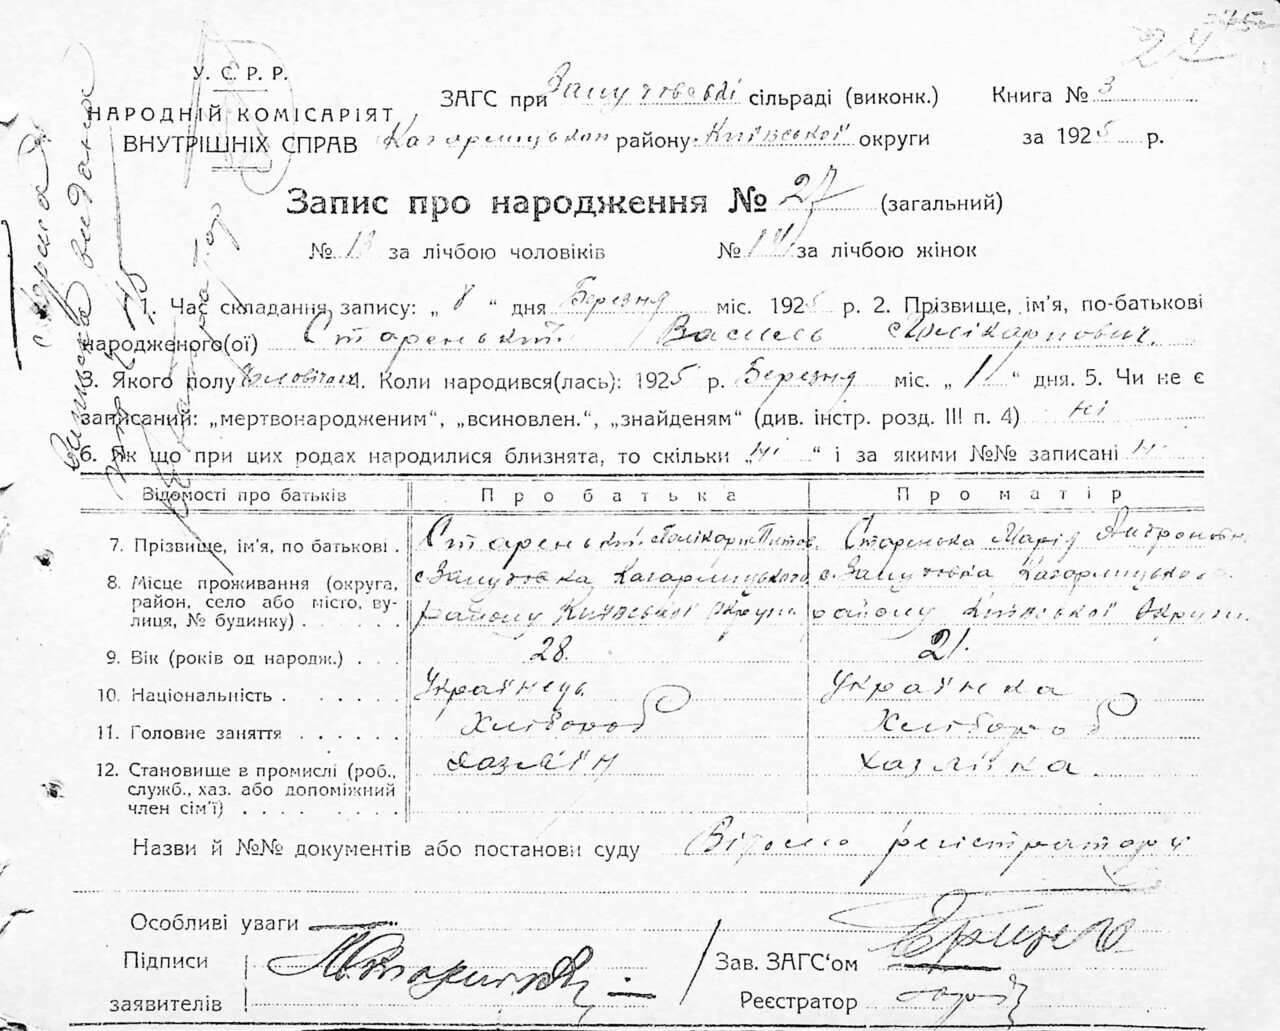 24
У. С. Р. Р.
НАРОДНІЙ КОМІСАРІЯТ
ВНУТРІШНІХ СПРАВ
ЗАГС при сільраді (виконк.) Книга № 3
Кагарлицького району Київської округи за 1925 р.
Запис про народження № 27 (загальний)
№ 13 за лічбою чоловіків № 14 за лічбою жінок
1. Час складання запису: „ 8 “ дня Березня міс. 1925 р. 2. Прізвище, ім’я, по-батькові
народженого(ої) Старенький Василь Полікарпович.
3. Якого полу Чоловічого 4. Коли народився(лась): 1925 р. Березня міс. „ 1 “ дня. 5. Чи не є
записаний: „мертвонародженим“, „всиновлен.“, „знайденям“ (див. інстр. розд. III п. 4) ні
6. Як що при цих родах народилися близнята, то скільки „ ні “ і за якими №№ записані ні
Відомості про батьків Про батька Про матір
7. Прізвище, ім’я, по батькові . Старенький Полікарп Титов. Старенька Марія
8. Місце проживання (округа, район, село або місто, вулиця, № будинку)
с. Кагарлицького с. Кагарлицького
району Київської Округи району Київської Округи.
9. Вік (років од народж.) . . . 28. 21.
10. Національність . . . . . . Українець Українка
11. Головне заняття . . . . . . Хлібороб Хлібороб
12. Становище в промислі (роб., служб., хаз. або допоміжний член сім’ї) . . . . . . . . Хазяїн Хазяйка.
Назви й №№ документів або постанови суду Відомо реєстратору
Особливі уваги —
Підписи
заявителів
Зав. ЗАГС‘ом
Реєстратор